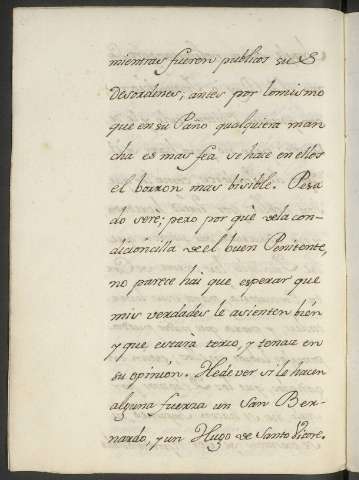 mientras fueron publicos sus
Desordenes; antes por lo mismo
que en su Paño qualquiera man
cha es mas fea se hace en ellos
el borron mas bisible. Pesa
do serè; pero por què de la con-
dicioncilla de el buen Penitente,
no parece hai que esperar que
mis verdades le asienten bien
y que estarà terco, y tenaz en
su opinion. Hede ver si le hacen
alguna fuerza un San Ber-
nardo, y un Hugo de Santo Victore.